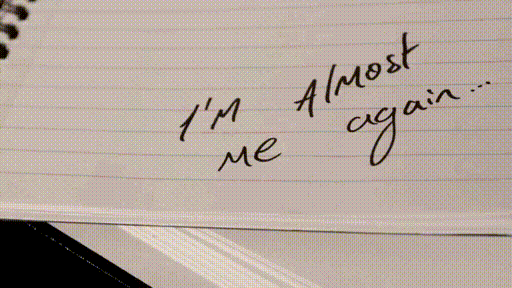 I'M Almost
me again...